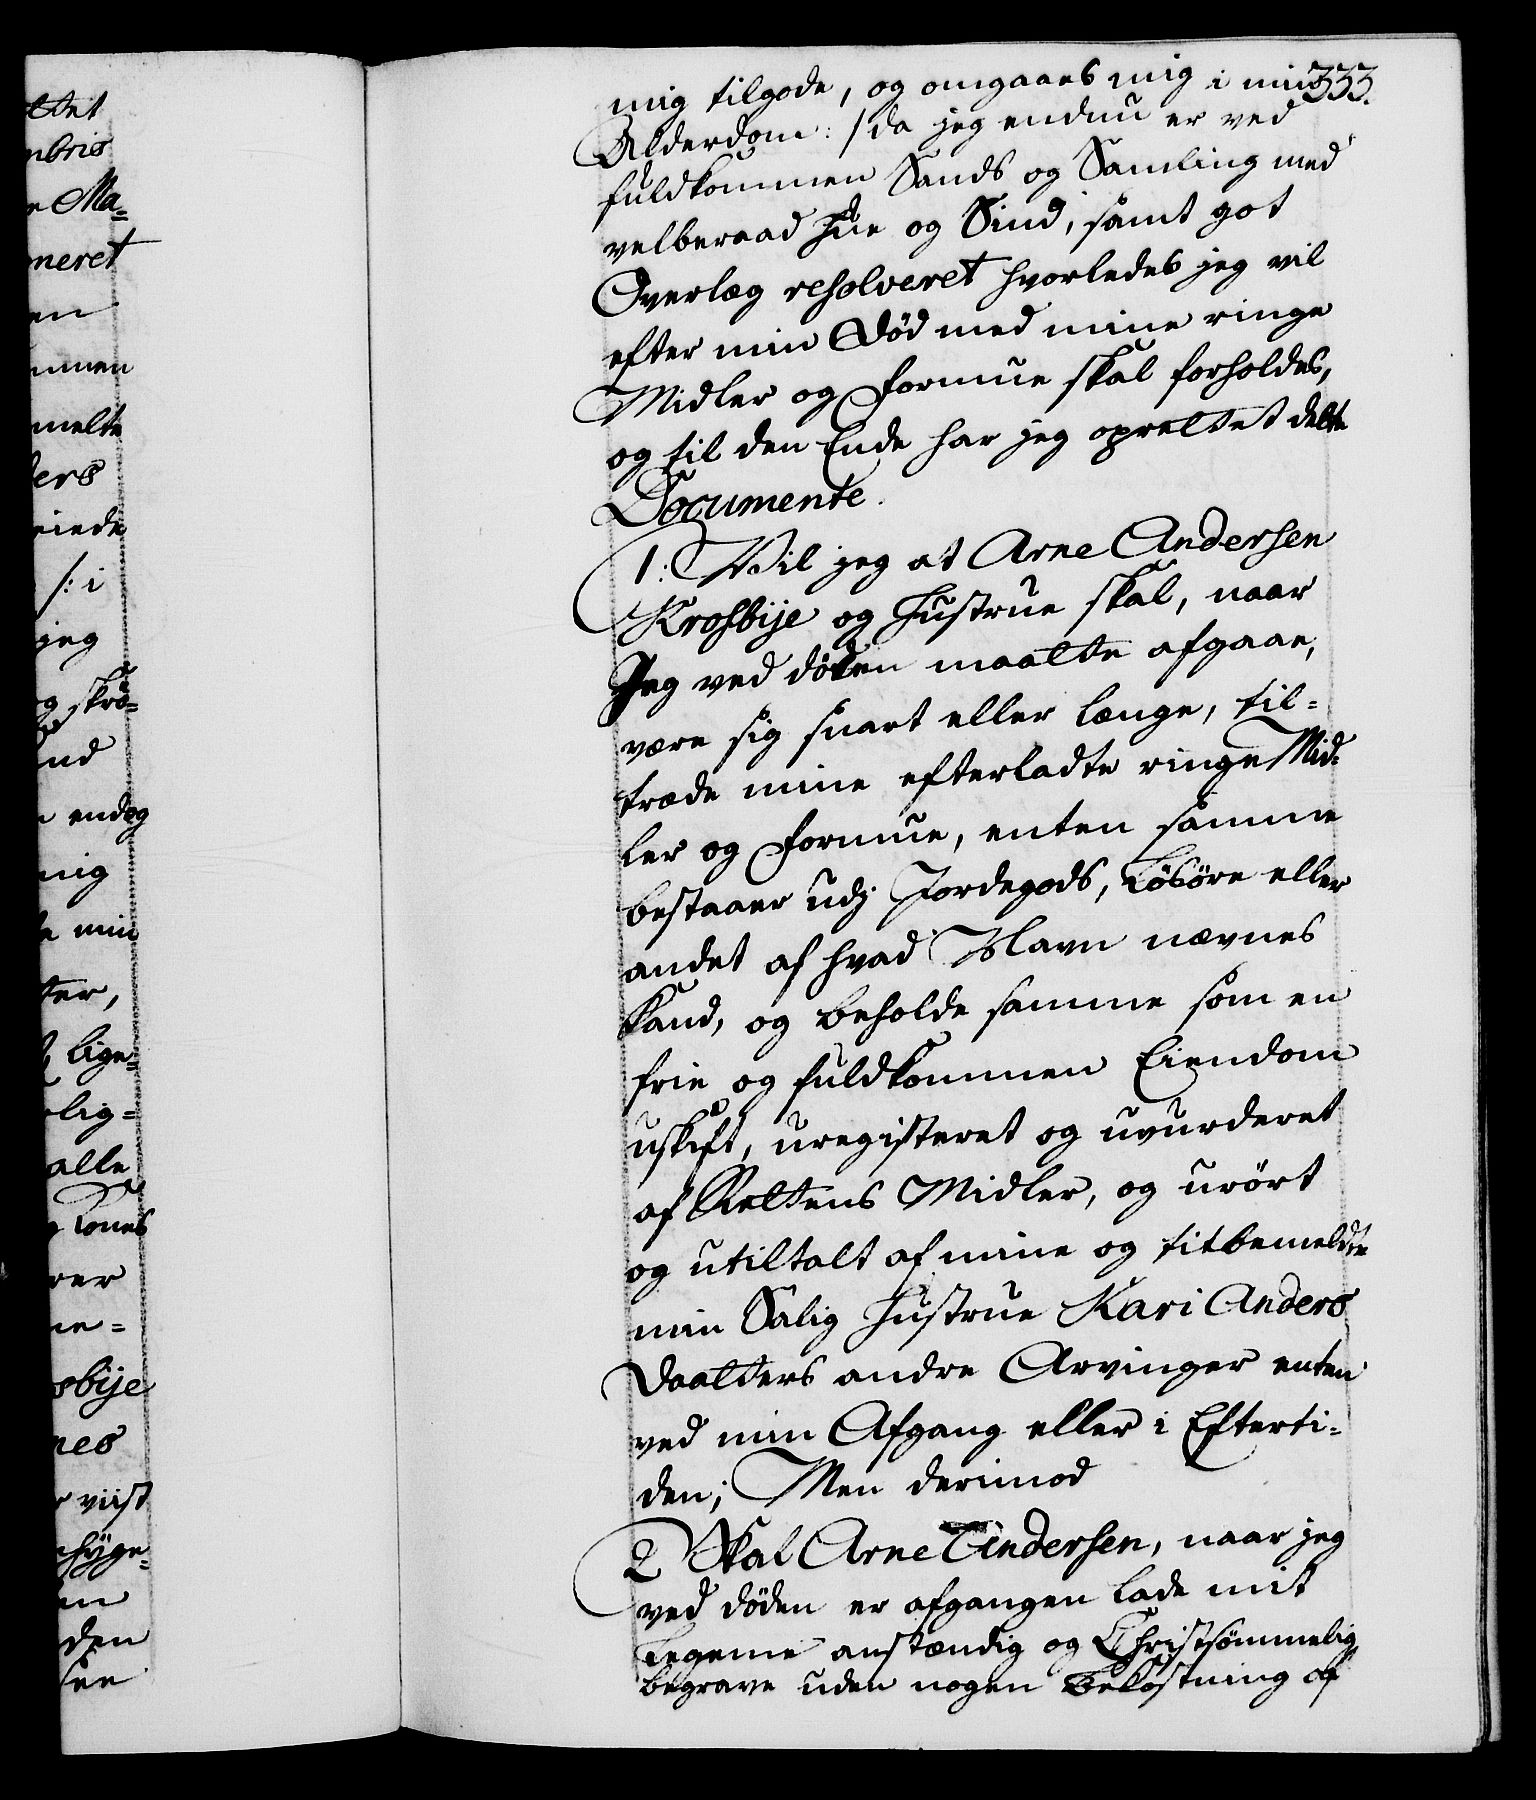 ttet
mbris
e Ma=
neret
en
mmen
melte
ders
eiede
/: i
jeg
og skrö=
nd
endog
mig
min
ter,
lige=
lig=
alle
Kones
rer
ne=
osbije
nes
viist
en
den
sen
333.
mig tilgode, og omgaaes mig i min
Alderdom: / da jeg endnu er ved
fuldkommen Sands og Samling med
velberaad Hue og Sind, samt got
Overlæg resolveret hvorledes jeg vil
efter min Död med mine ringe
Midler og Formue skal forholdes,
og til den Ende har jeg oprettet dette
Documente.
1: Vil jeg at Arne Andersen
Krosbije og Hustrue skal, naar
Jeg ved döden maatte afgaae,
være sig snart eller længe, til=
træde mine efterladte ringe Mid=
ler og Formue, enten samme
bestaaer udj Jordegods, Lösöre eller
andet af hvad Navn nævnes
kand, og beholde samme som en
frie og fuldkommen Eiendom
uskift, uregisteret og uvurderet
af Rettens Midler, og urört
og utiltalt af mine og titbemeldte
min Salig Hustrue Kari Anders
Daatters andre Arvinger enten
ved min Afgang eller i Efterti=
den; Men derimod
2 Skal Arne Andersen, naar jeg
ved döden er afgangen lade mit
Legeme anstændig og Christsömmelig
begrave uden nogen Bekostning af